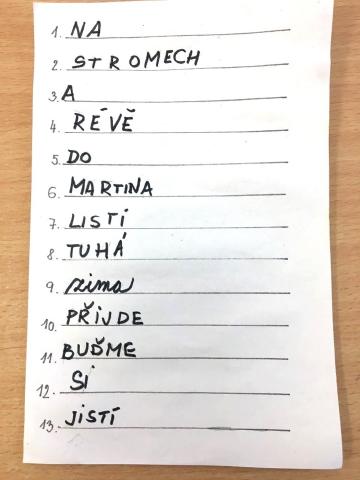 1. NA
2. STROMECH
3. A
4. RÉVĚ
5. DO
6. MARTINA
7. LISTÍ
8. TUHÁ
9. zima
10. PŘIJDE
11. BUĎME
12. SI
13. JISTÍ